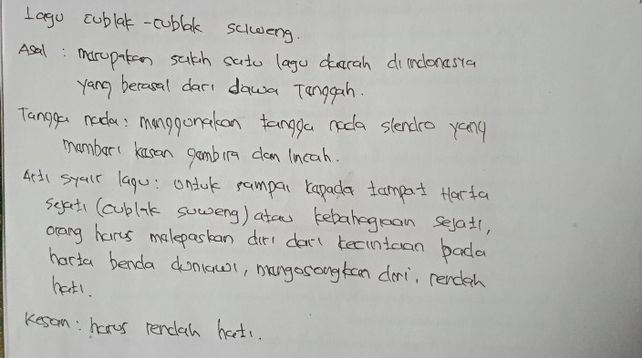 Lagu cublak-cublak suweng.
Asal : merupakan salah satu lagu daerah di indonesia
yang berasal dari Jawa Tenggah.
Tangga nada : menggunakan tangga nada slendro yang
memberi kesan gembira dan lincah.
Arti syair lagu : untuk sampai kepada tempat Harta
Sejati (cublak suweng) atau kebahagiaan sejati,
orang harus melepaskan diri dari kecintaan pada
harta benda duniawi, mengosongkan diri, rendah
hati.
Kesan : harus rendah hati.